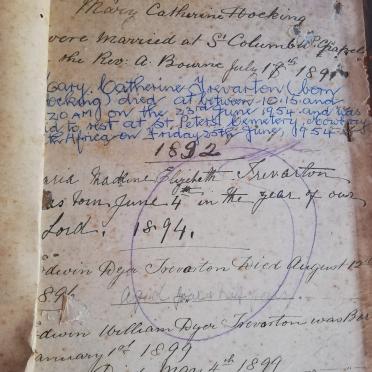 Mary Catherine Hocking
were Married at St Columba Chapel
the Rev: A. Bourne July 17th 1891
Mary Catherine Trevarton (born
Hocking) died at between 10.15 and
20 AM on the 23rd June 1954 and was
to rest at St. Peters Cemetery
Africa on Friday 25th June, 1954
1892
aria Madline Elyzebeth Trevarton
as born June 4th in the year of our
Lord: 1894.
dwin Dyer Trevarton Died August 12th
189
aged
dwin William Dyer Trevarton was Bor
anuary 1st 1899
Died May 4th 1899